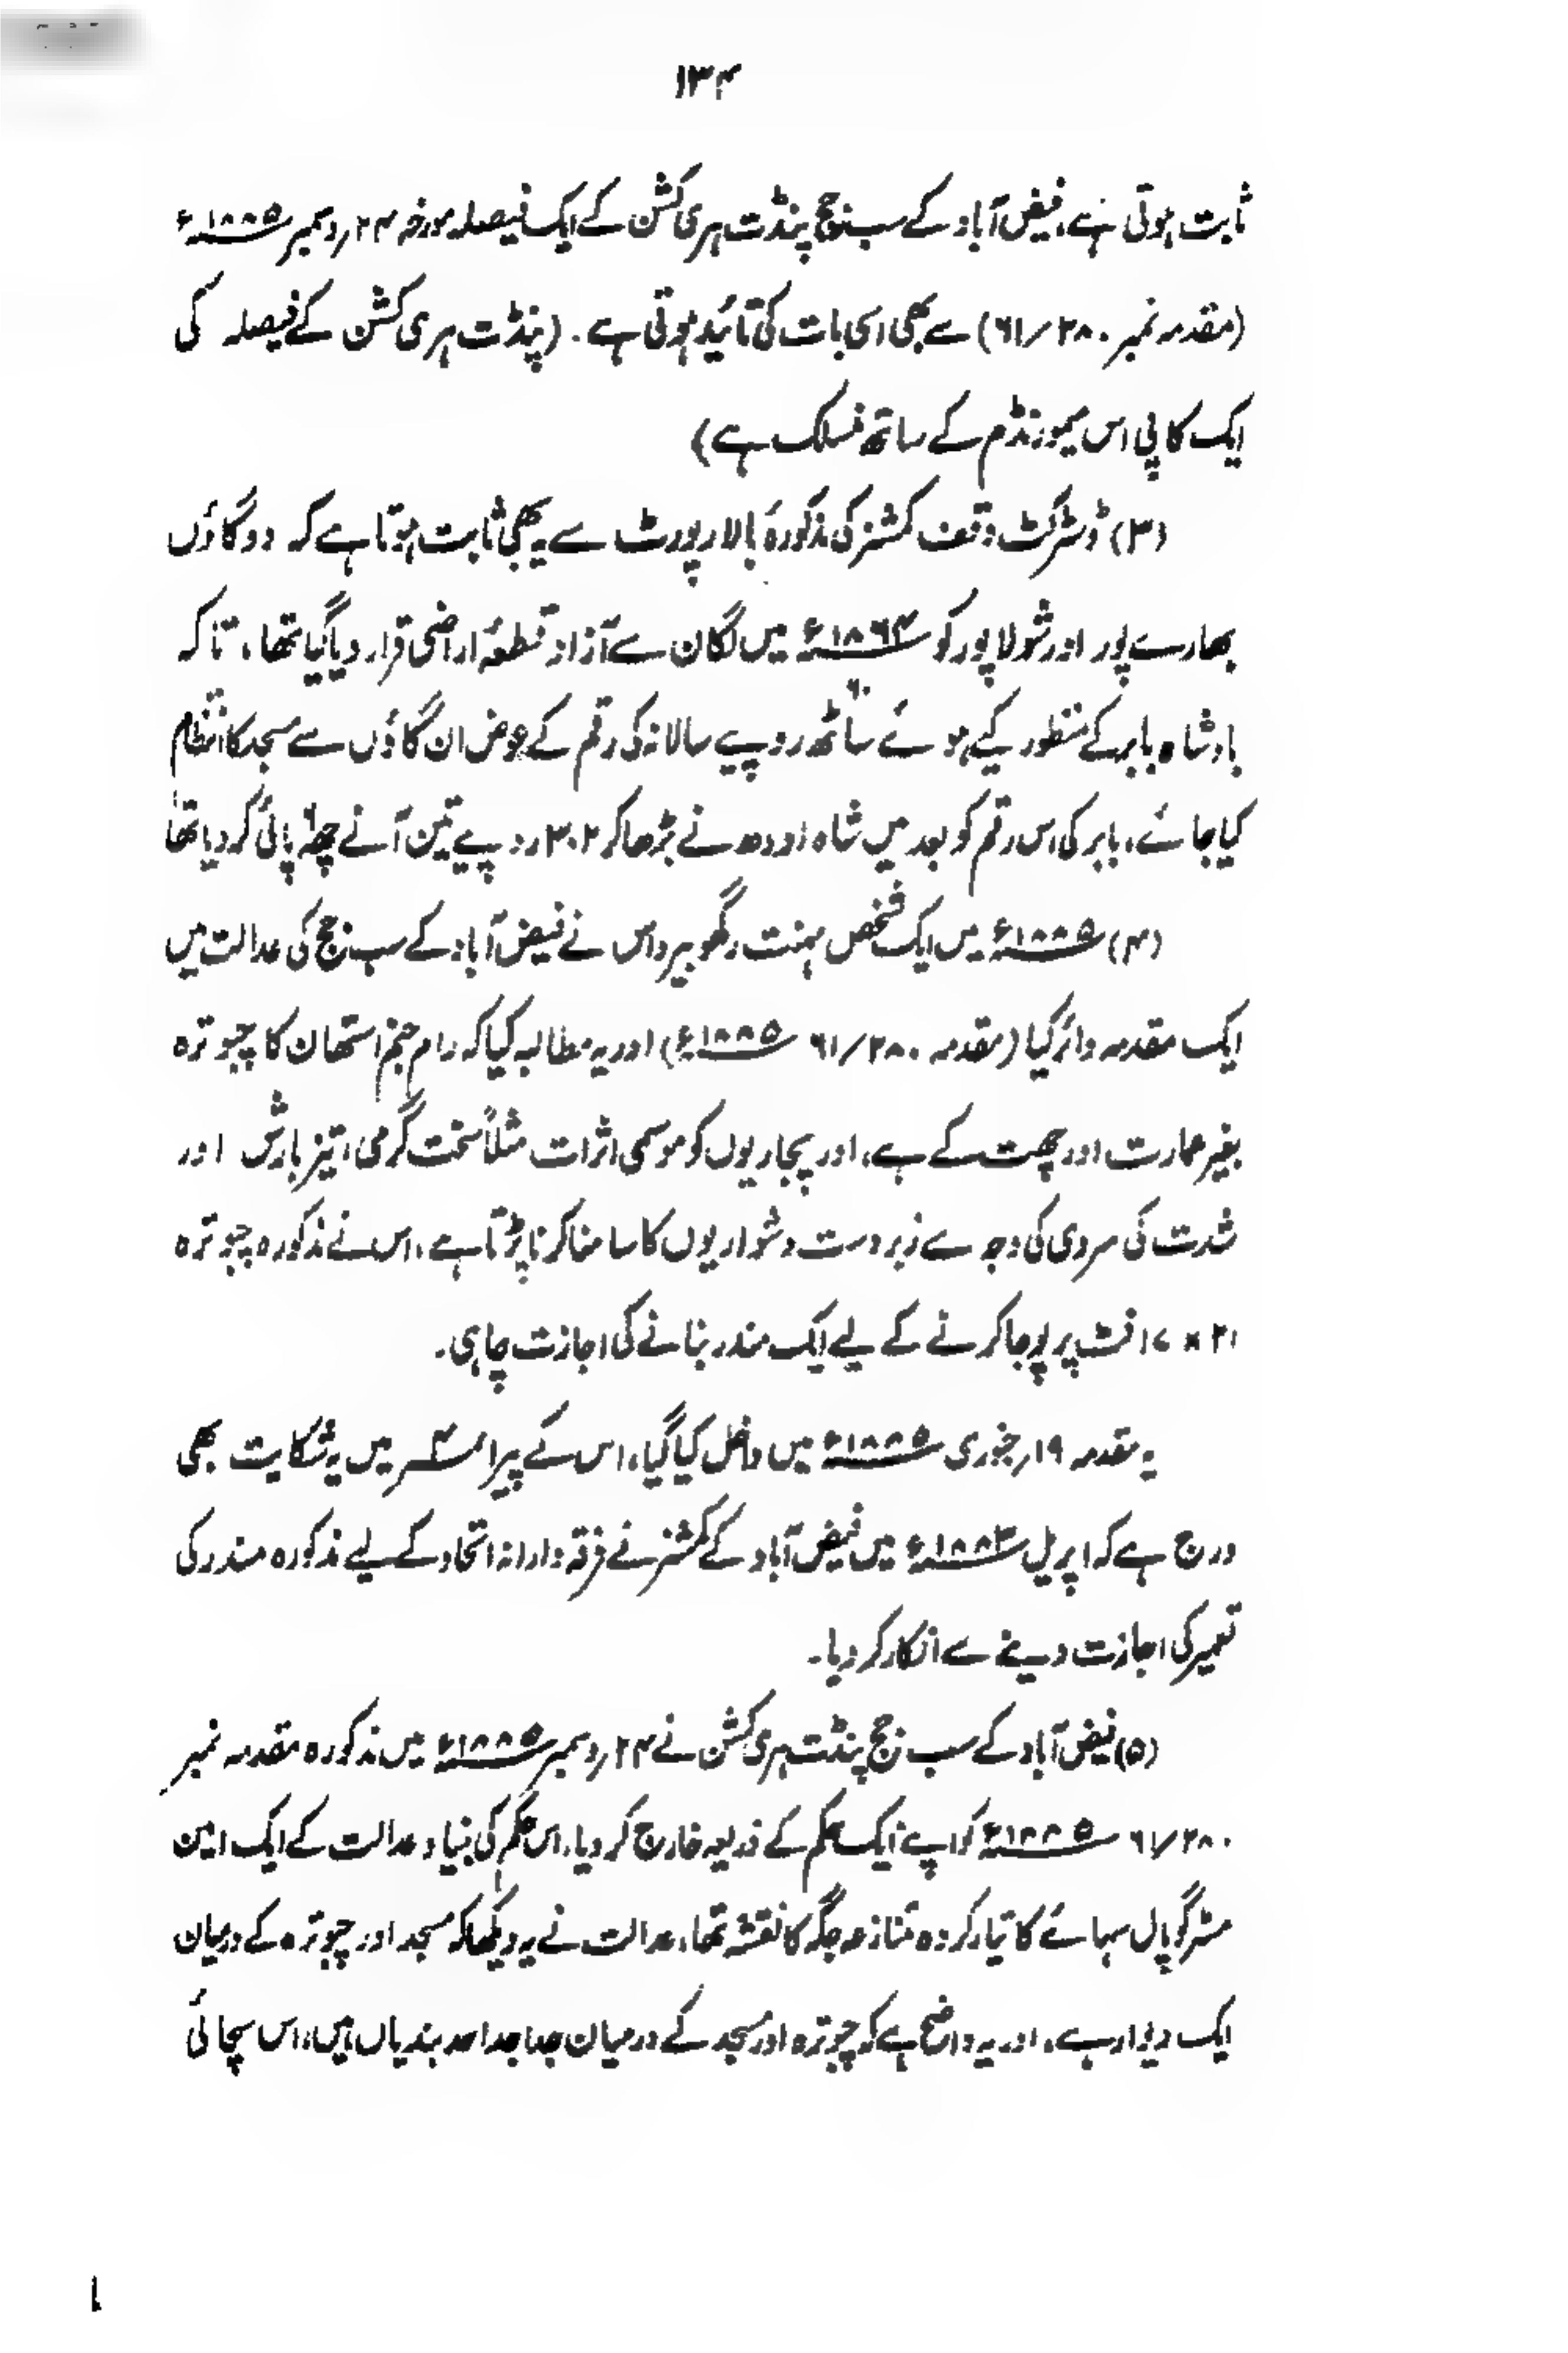 ۱۳۴
ثابت ہوتی ہے، فیض آباد کے سب جج پنڈت ہری کشن کے ایک فیصلہ مورخہ ۲۴؍دسمبر ۱۸۸۵ء
(مقدمہ نمبر ۶۱/۲۸۰) سے بھی اسی بات کی تائید ہوتی ہے۔ (پنڈت ہری کشن کے فیصلہ کی
ایک کاپی اس میمورنڈم کے ساتھ منسلک ہے)
(۳) ڈسٹرکٹ وقف کمشنر کی مذکورۂ بالا رپورٹ سے یہ بھی ثابت ہوتا ہے کہ دو گاؤں
بھارے پور اور شولا پور کو ۱۸۶۴ء میں لگان سے آزاد قطعۂ اراضی قرار دیا گیا تھا، تاکہ
بادشاہ بابر کے منظور کیے ہوئے ساٹھ۶۰ روپیے سالانہ کی رقم کے عوض ان گاؤں سے مسجد کا انتظام
کیا جائے، بابر کی اس رقم کو بعد میں شاہ اودھ نے بڑھا کر ۳۰۲ روپیے تین آنے چھ۶ پائی کر دیا تھا
(۴) ۱۸۸۵ء میں ایک شخص مہنت رگھوبیر داس نے فیض آباد کے سب جج کی عدالت میں
ایک مقدمہ دائر کیا (مقدمہ ۶۱/۲۸۰ ۱۸۸۵ء) اور یہ مطالبہ کیا کہ رام جنم استھان کا چبوترہ
بغیر عمارت اور چھت کے ہے، اور پجاریوں کو موسمی اثرات مثلاً سخت گرمی، تیز بارش اور
شدت کی سردی کی وجہ سے زبردست دشواریوں کا سامنا کرنا پڑتا ہے، اس نے مذکورہ چبوترہ
۲۱ × ۱۷ فٹ پر پوجا کرنے کے لیے ایک مندر بنانے کی اجازت چاہی۔
یہ مقدمہ ۱۹؍جنوری ۱۸۸۵ء میں داخل کیا گیا، اس کے پیرا ۴ میں یہ شکایت بھی
درج ہے کہ اپریل ۱۸۸۳ء میں فیض آباد کے کمشنر نے فرقہ دارانہ اتحاد کے لیے مذکورہ مندر کی
تعمیر کی اجازت دینے سے انکار کر دیا۔
(۵) فیض آباد کے سب جج پنڈت ہری کشن نے ۲۴؍دسمبر ۱۸۸۵ء میں مذکورہ مقدمہ نمبر
۶۱/۲۸۰ ۱۸۸۵ء کو اپنے ایک حکم کے ذریعہ خارج کر دیا، اس حکم کی بنیاد عدالت کے ایک امین
مسٹر گوپال سہائے کا تیار کردہ متنازعہ جگہ کا نقشہ تھا، عدالت نے یہ دیکھا کہ مسجد اور چبوترہ کے درمیان
ایک دیوار ہے، اور یہ واضح ہے کہ چبوترہ اور مسجد کے درمیان جدا جدا حد بندیاں ہیں، اس سچائی